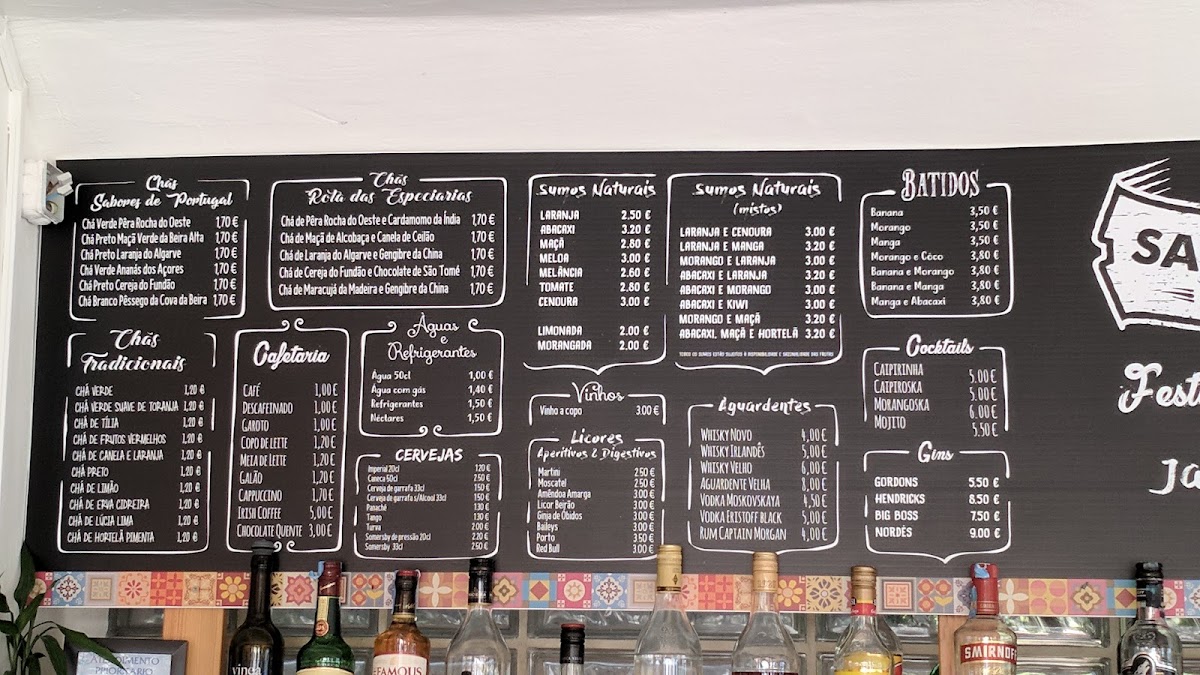 Chás
Sabores de Portugal
Chá Verde Pêra Rocha do Oeste 1,70 €
Chá Preto Maçã Verde da Beira Alta 1,70 €
Chá Preto Laranja do Algarve 1,70 €
Chá Verde Ananás dos Açores 1,70 €
Chá Preto Cereja do Fundão 1,70 €
Chá Branco Pêssego da Cova da Beira 1,70 €
Chás
Rota das Especiarias
Chá de Pêra Rocha do Oeste e Cardamomo da Índia 1,70 €
Chá de Maçã de Alcobaça e Canela de Ceilão 1,70 €
Chá de Laranja do Algarve e Gengibre da China 1,70 €
Chá de Cereja do Fundão e Chocolate de São Tomé 1,70 €
Chá de Maracujá da Madeira e Gengibre da China 1,70 €
Sumos Naturais
LARANJA 2.50 €
ABACAXI 3.20 €
MAÇÃ 2.80 €
MELOA 3.00 €
MELÂNCIA 2.60 €
TOMATE 2.80 €
CENOURA 3.00 €
LIMONADA 2.00 €
MORANGADA 2.00 €
Sumos Naturais
(mistos)
LARANJA E CENOURA 3.00 €
LARANJA E MANGA 3.20 €
MORANGO E LARANJA 3.00 €
ABACAXI E LARANJA 3.20 €
ABACAXI E MORANGO 3.00 €
ABACAXI E KIWI 3.00 €
MORANGO E MAÇÃ 3.20 €
ABACAXI, MAÇÃ E HORTELÃ 3.20 €
TODOS OS SUMOS ESTÃO SUJEITOS À DISPONIBILIDADE E SAZONALIDADE DAS FRUTAS
BATIDOS
Banana 3,50 €
Morango 3,50 €
Manga 3,50 €
Morango e Côco 3,80 €
Banana e Morango 3,80 €
Banana e Manga 3,80 €
Manga e Abacaxi 3,80 €
SA
Fest
Ja
Chás
Tradicionais
CHÁ VERDE 1,20 €
CHÁ VERDE SUAVE DE TORANJA 1,20 €
CHÁ DE TÍLIA 1,20 €
CHÁ DE FRUTOS VERMELHOS 1,20 €
CHÁ DE CANELA E LARANJA 1,20 €
CHÁ PRETO 1,20 €
CHÁ DE LIMÃO 1,20 €
CHÁ DE ERVA CIDREIRA 1,20 €
CHÁ DE LÚCIA LIMA 1,20 €
CHÁ DE HORTELÃ PIMENTA 1,20 €
Cafetaria
CAFÉ 1,00 €
DESCAFEINADO 1,00 €
GAROTO 1,00 €
COPO DE LEITE 1,20 €
MEIA DE LEITE 1,20 €
GALÃO 1,20 €
CAPPUCCINO 1,70 €
IRISH COFFEE 5,00 €
CHOCOLATE QUENTE 3,00 €
Águas
e
Refrigerantes
Água 50cl 1,00 €
Água com gás 1,40 €
Refrigerantes 1,50 €
Néctares 1,50 €
CERVEJAS
Imperial 20cl 1.20 €
Caneca 50cl 2.50 €
Cerveja de garrafa 33cl 1.50 €
Cerveja de garrafa s/Alcool 33cl 1.50 €
Panaché 1.30 €
Tango 1.30 €
Turra 2.00 €
Somersby de pressão 20cl 2.20 €
Somersby 33cl 2.50 €
Vinhos
Vinho a copo 3.00 €
Licores
Aperitivos & Digestivos
Martini 2.50 €
Moscatel 2.50 €
Amêndoa Amarga 3.00 €
Licor Beirão 3.00 €
Ginja de Óbidos 3.00 €
Baileys 3.00 €
Porto 3.50 €
Red Bull 3.00 €
Aguardentes
WHISKY NOVO 4,00 €
WHISKY IRLANDÊS 5,00 €
WHISKY VELHO 6,00 €
AGUARDENTE VELHA 8,00 €
VODKA MOSKOVSKAYA 4,50 €
VODKA ERISTOFF BLACK 5,00 €
RUM CAPTAIN MORGAN 4,00 €
Cocktails
CAIPIRINHA 5.00 €
CAIPIROSKA 5.00 €
MORANGOSKA 6.00 €
MOJITO 5.50 €
Gins
GORDONS 5.50 €
HENDRICKS 8.50 €
BIG BOSS 7.50 €
NORDÉS 9.00 €
ATENDIMENTO
PRIORITÁRIO
vinea
FAMOUS
SMIRNOFF